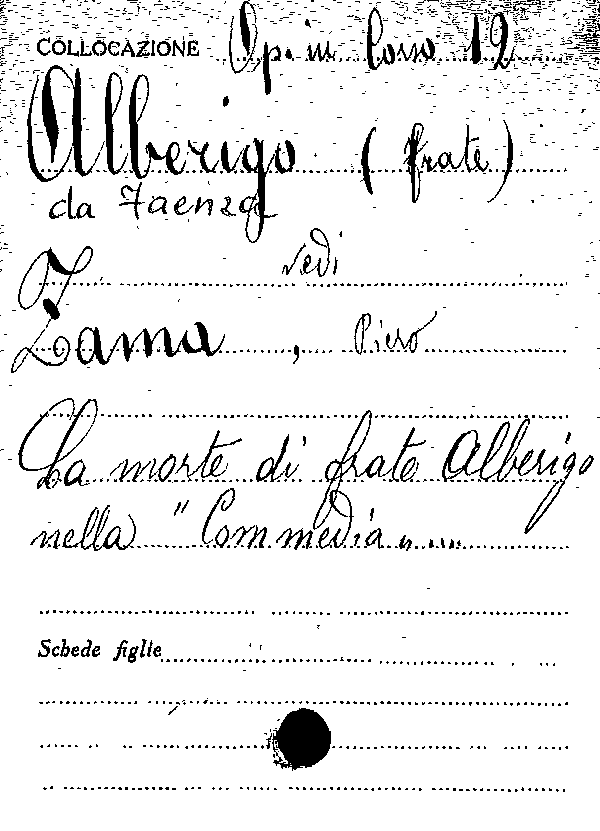 COLLOCAZIONE Op. in Corso 12
Alberigo (frate)
da Faenza
vedi
Zama, Piero
La morte di frate Alberigo
nella "Commedia"
Schede figlie